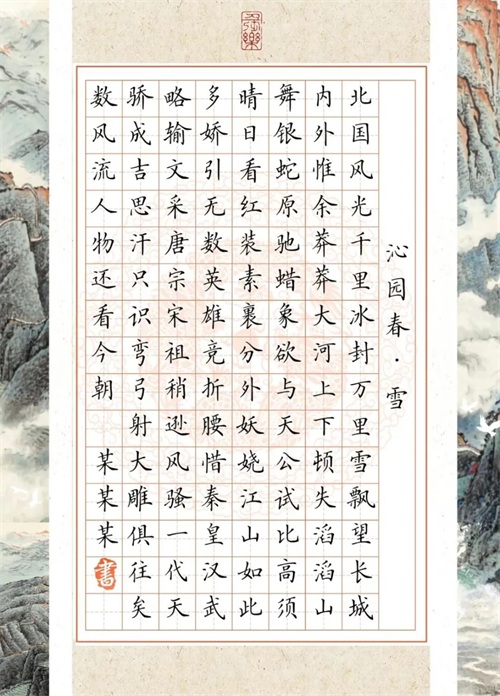 沁园春·雪
北国风光千里冰封万里雪飘望长城
内外惟余莽莽大河上下顿失滔滔山
舞银蛇原驰蜡象欲与天公试比高须
晴日看红装素裹分外妖娆江山如此
多娇引无数英雄竞折腰惜秦皇汉武
略输文采唐宗宋祖稍逊风骚一代天
骄成吉思汗只识弯弓射大雕俱往矣
数风流人物还看今朝 某某某 書